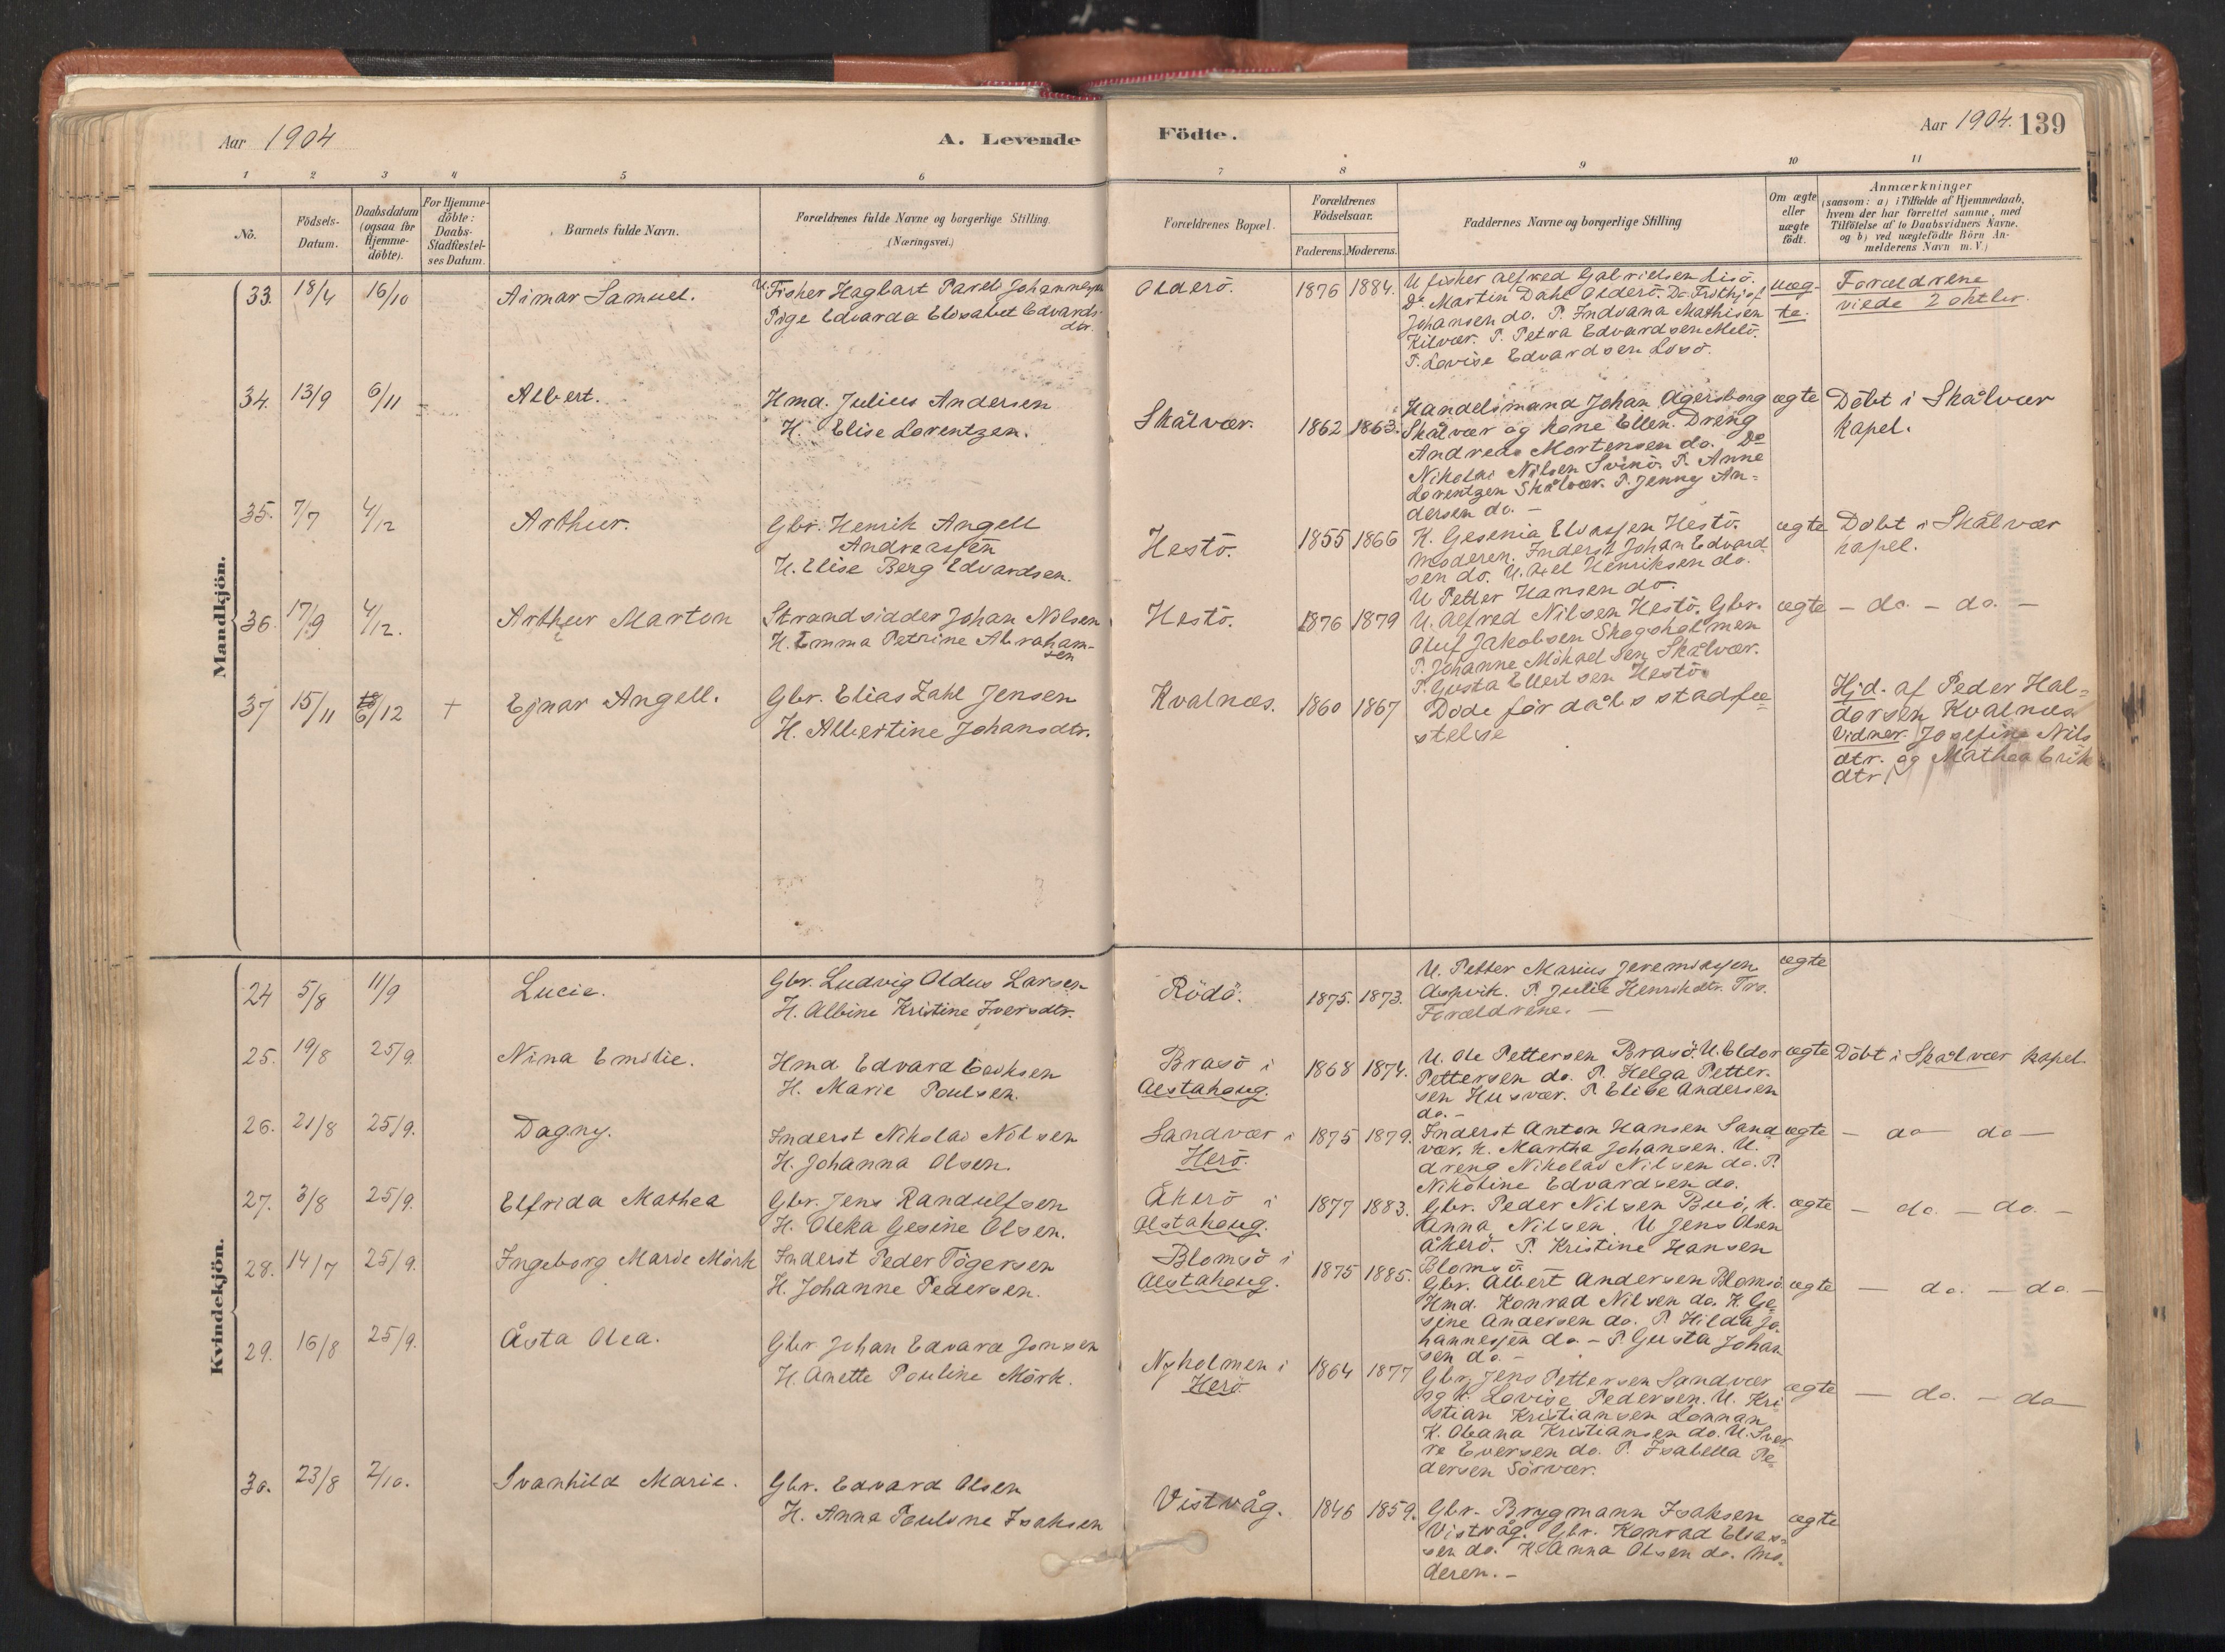 Aar 1904
A. Levende Födte.
Aar 1904. 139
1 2 3 4 5 6 7 8 9 10 11
No.
Födsels-
Datum.
Daabsdatum
(ogsaa for
Hjemme-
döbte).
For Hjemme-
döbte:
Daabs-
Stadfæstel-
ses Datum.
Barnets fulde Navn.
Forældrenes fulde Navne og borgerlige Stilling.
(Næringsvei.)
Forældrenes Bopæl.
Forældrenes
Födselsaar.
Faderens. Moderens.
Faddernes Navne og borgerlige Stilling
Om ægte
eller
uægte
födt.
Anmærkninger
(saasom: a) i Tilfælde af Hjemmedaab,
hvem der har forrettet samme, med
Tilföielse af to Daabsvidners Navne.
og b) ved uægtefödte Börn An-
melderens Navn m.V.)
Mandkjön.
33. 18/4 16/10
Aimar Samuel.
U. Fisher Hagbart Pareli Johannesen
Pige Edvarda Elisabet Edvards-
dtr.
Olderö.
1876 1884.
U fisher Alfred Gabrielsen Lisö.
Do Martin Dahl Olderö. Do Frithjof
Johansen do. P. Indvana Mathisen
Kilvær. P. Petra Edvardsen Melö.
P. Lovise Edvardsen Losö.
uæg-
te.
Forældrene
viede 2 oktbr.
34. 13/9 6/11 -
Albert.
Hmd. Julius Andersen
H. Elise Lorentzen.
Skålvær.
1862 1863.
Handelsmand Johan Agersborg
Skålvær og kone Ellen. Dreng
Andreas Mortensen do. Do
Nikolai Nilsen Svinö. P. Anne
Lorentzen Skålvær. P. Jenny An=
dersen do. -
ægte
Döbt i Skålvær
kapel.
35. 7/7 4/12
Arthur.
Gbr. Henrik Angell
Andreassen
H. Elise Berg Edvardsen.
Hestö.
1855 1866
K. Gesenia Eliassen Hestö.
Moderen. Inderst Johan Edvard
sen do. U. Axel Henriksen do.
U Petter Hansen do.
ægte
Döbt i Skålvær
kapel.
36. 17/9 4/12.
Arthur Marton
Strandsidder Johan Nilsen
H. Emma Petrine Abraham-
sen
Hestö.
1876 1879
U. Alfred Nilsen Hestö. Gbr.
Oluf Jakobsen Skogsholmen
P. Johanne Mikaelsen Skålvær.
P. Gusta Ellertsen Hestö.
ægte
- do. - do. -
37 15/11 6/12 +
Ejnar Angell.
Gbr. Elias Zahl Jensen
H. Albertine Johansdtr.
Kvalnæs.
1860 1867
Döde för dåbsstadfæ=
stelse
Hjd. af Peder Hal=
dorsen Kvalnæs
Vidner. Josefine Nils
dtr. og Mathea Erik
dtr.
Kvindekjön.
24 5/8 11/9
Lucie.
Gbr. Ludvig Oldus Larsen
H. Albine Kristine Iversdtr.
Rödö.
1875. 1873.
U. Petter Marius Jeremiassen
Aspvik. P. Julie Henrikdtr. Tro.
Forældrene. -
ægte
25. 19/8 25/9.
Nina Emilie.
Hmd Edvard Eriksen
H. Marie Poulsen.
Brasö i
Alstahoug.
1868 1874.
U. Ole Pettersen Brasö. U. Eldor
Pettersen do. P. Helga Petter-
sen Husvær. P. Elise Andersen
do. -
ægte
Döbt i Skålvær kapel
26. 21/8 25/9.
Dagny.
Inderst Nikolai Nilsen
H. Johanna Olsen.
Sandvær i
Herö.
1875 1879.
Inderst Anton Hansen Sand
vær. K. Martha Johansen. U.
dreng Nikolai Nilsen do. P.
Nikoline Edvardsen do.
ægte
- do do -
27. 3/8 25/9.
Elfrida Mathea
Gbr. Jens Randulfsen
H. Oleka Gesine Olsen.
Åkerö i
Alstahoug.
1877 1883.
Gbr. Peder Nilsen Buö, K.
Anna Nilsen. U Jens Olsen
Åkerö. P. Kristine Hansen
Blomsö.
ægte
- do. - do. -
28. 14/7 25/9.
Ingeborg Marie Mörk
Inderst Peder Tögersen
H. Johanne Pedersen.
Blomsö i
Alstahoug.
1875 1885.
Gbr. Albert Andersen Blomsö
Hmd. Konrad Nilsen do. K. Ge
sine Andersen do. P Hilda Jo
hannessen do. - P. Gusta Johan
sen do. -
ægte
- do. - do. -
29. 16/8 25/9.
Åsta Olea.
Gbr Johan Edvard Jonsen
H. Anette Pouline Mörk.
Nyholmen i
Herö
1864 1877
Gbr Jens Pettersen Sandvær
og K. Lovise Pedersen. U. Kri
stian Kristiansen Lonnan
K. Oleana Kristiansen do. U. Sver
re Eversen do. P. Isabella Pe
dersen Sörvær.
ægte
- do. - do
30. 23/8 2/10.
Svanhild Marie.
Gbr. Edvard Olsen
H. Anna Pouline Isaksen
Vistvåg.
1846 1859.
Gbr. Brygmann Isaksen
Vistvåg. Gbr. Konrad Elias=
sen do. K. Anna Olsen do. Mo-
deren. -
ægte